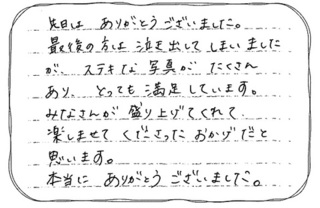 先日は ありがとうございました。
最後の方は 泣き出して しまいました
が、ステキな 写真が たくさん
あり、とっても 満足しています。
みなさんが 盛り上げてくれて、
楽しませて くださった おかげだと
思います。
本当に ありがとう ございました。